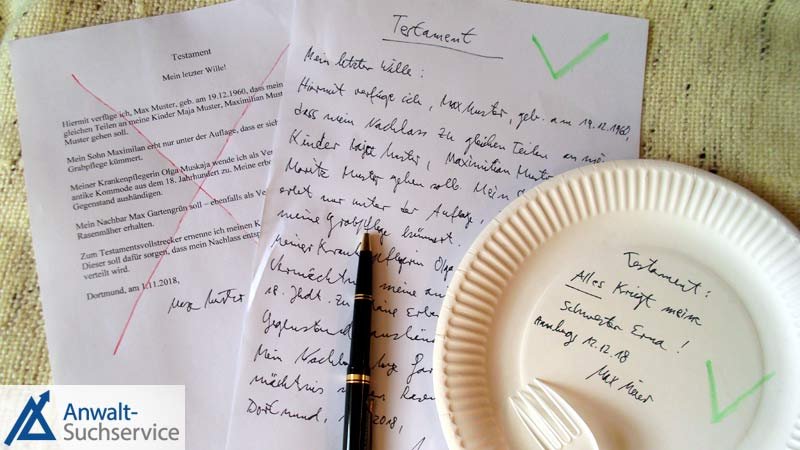 Testament
Mein letzter Wille!
Hiermit verfüge ich, Max Muster, geb. am 19.12.1960, dass mein
gleichen Teilen an meine Kinder Maja Muster, Maximilian Must
Muster gehen soll.
Mein Sohn Maximilan erbt nur unter der Auflage, dass er sich
Grabpflege kümmert.
Meiner Krankenpflegerin Olga Muskaja wende ich als Ve
antike Kommode aus dem 18. Jahrhundert zu. Meine erbe
Gegenstand aushändigen.
Mein Nachbar Max Gartengrün soll – ebenfalls als Ve
Rasenmäher erhalten.
Zum Testamentsvollstrecker ernenne ich meinen K
Dieser soll dafür sorgen, dass mein Nachlass entsp
verteilt wird.
Dortmund, am 1.11.2018,
Max Muster
Testament
Mein letzter Wille:
Hiermit verfüge ich, Max Muster, geb. am 19.12.1960,
dass mein Nachlass zu gleichen Teilen an mei
Kinder Maja Muster, Maximilian Muster
Moritz Muster gehen soll. Mein
erbt nur unter der Auflage,
meine Grabpflege kümmert.
Meiner Krankenpflegerin Olga
Vermächtnis meine an
18. Jhdt. zu. Meine Erbe
Gegenstand aushän
Mein Nachbar Gar
mächtnis Rasen
Dortmund, 2018,
Testament:
Alles kriegt meine
Schwester Erna!
12.12.18
Max Meier
Anwalt-
Suchservice